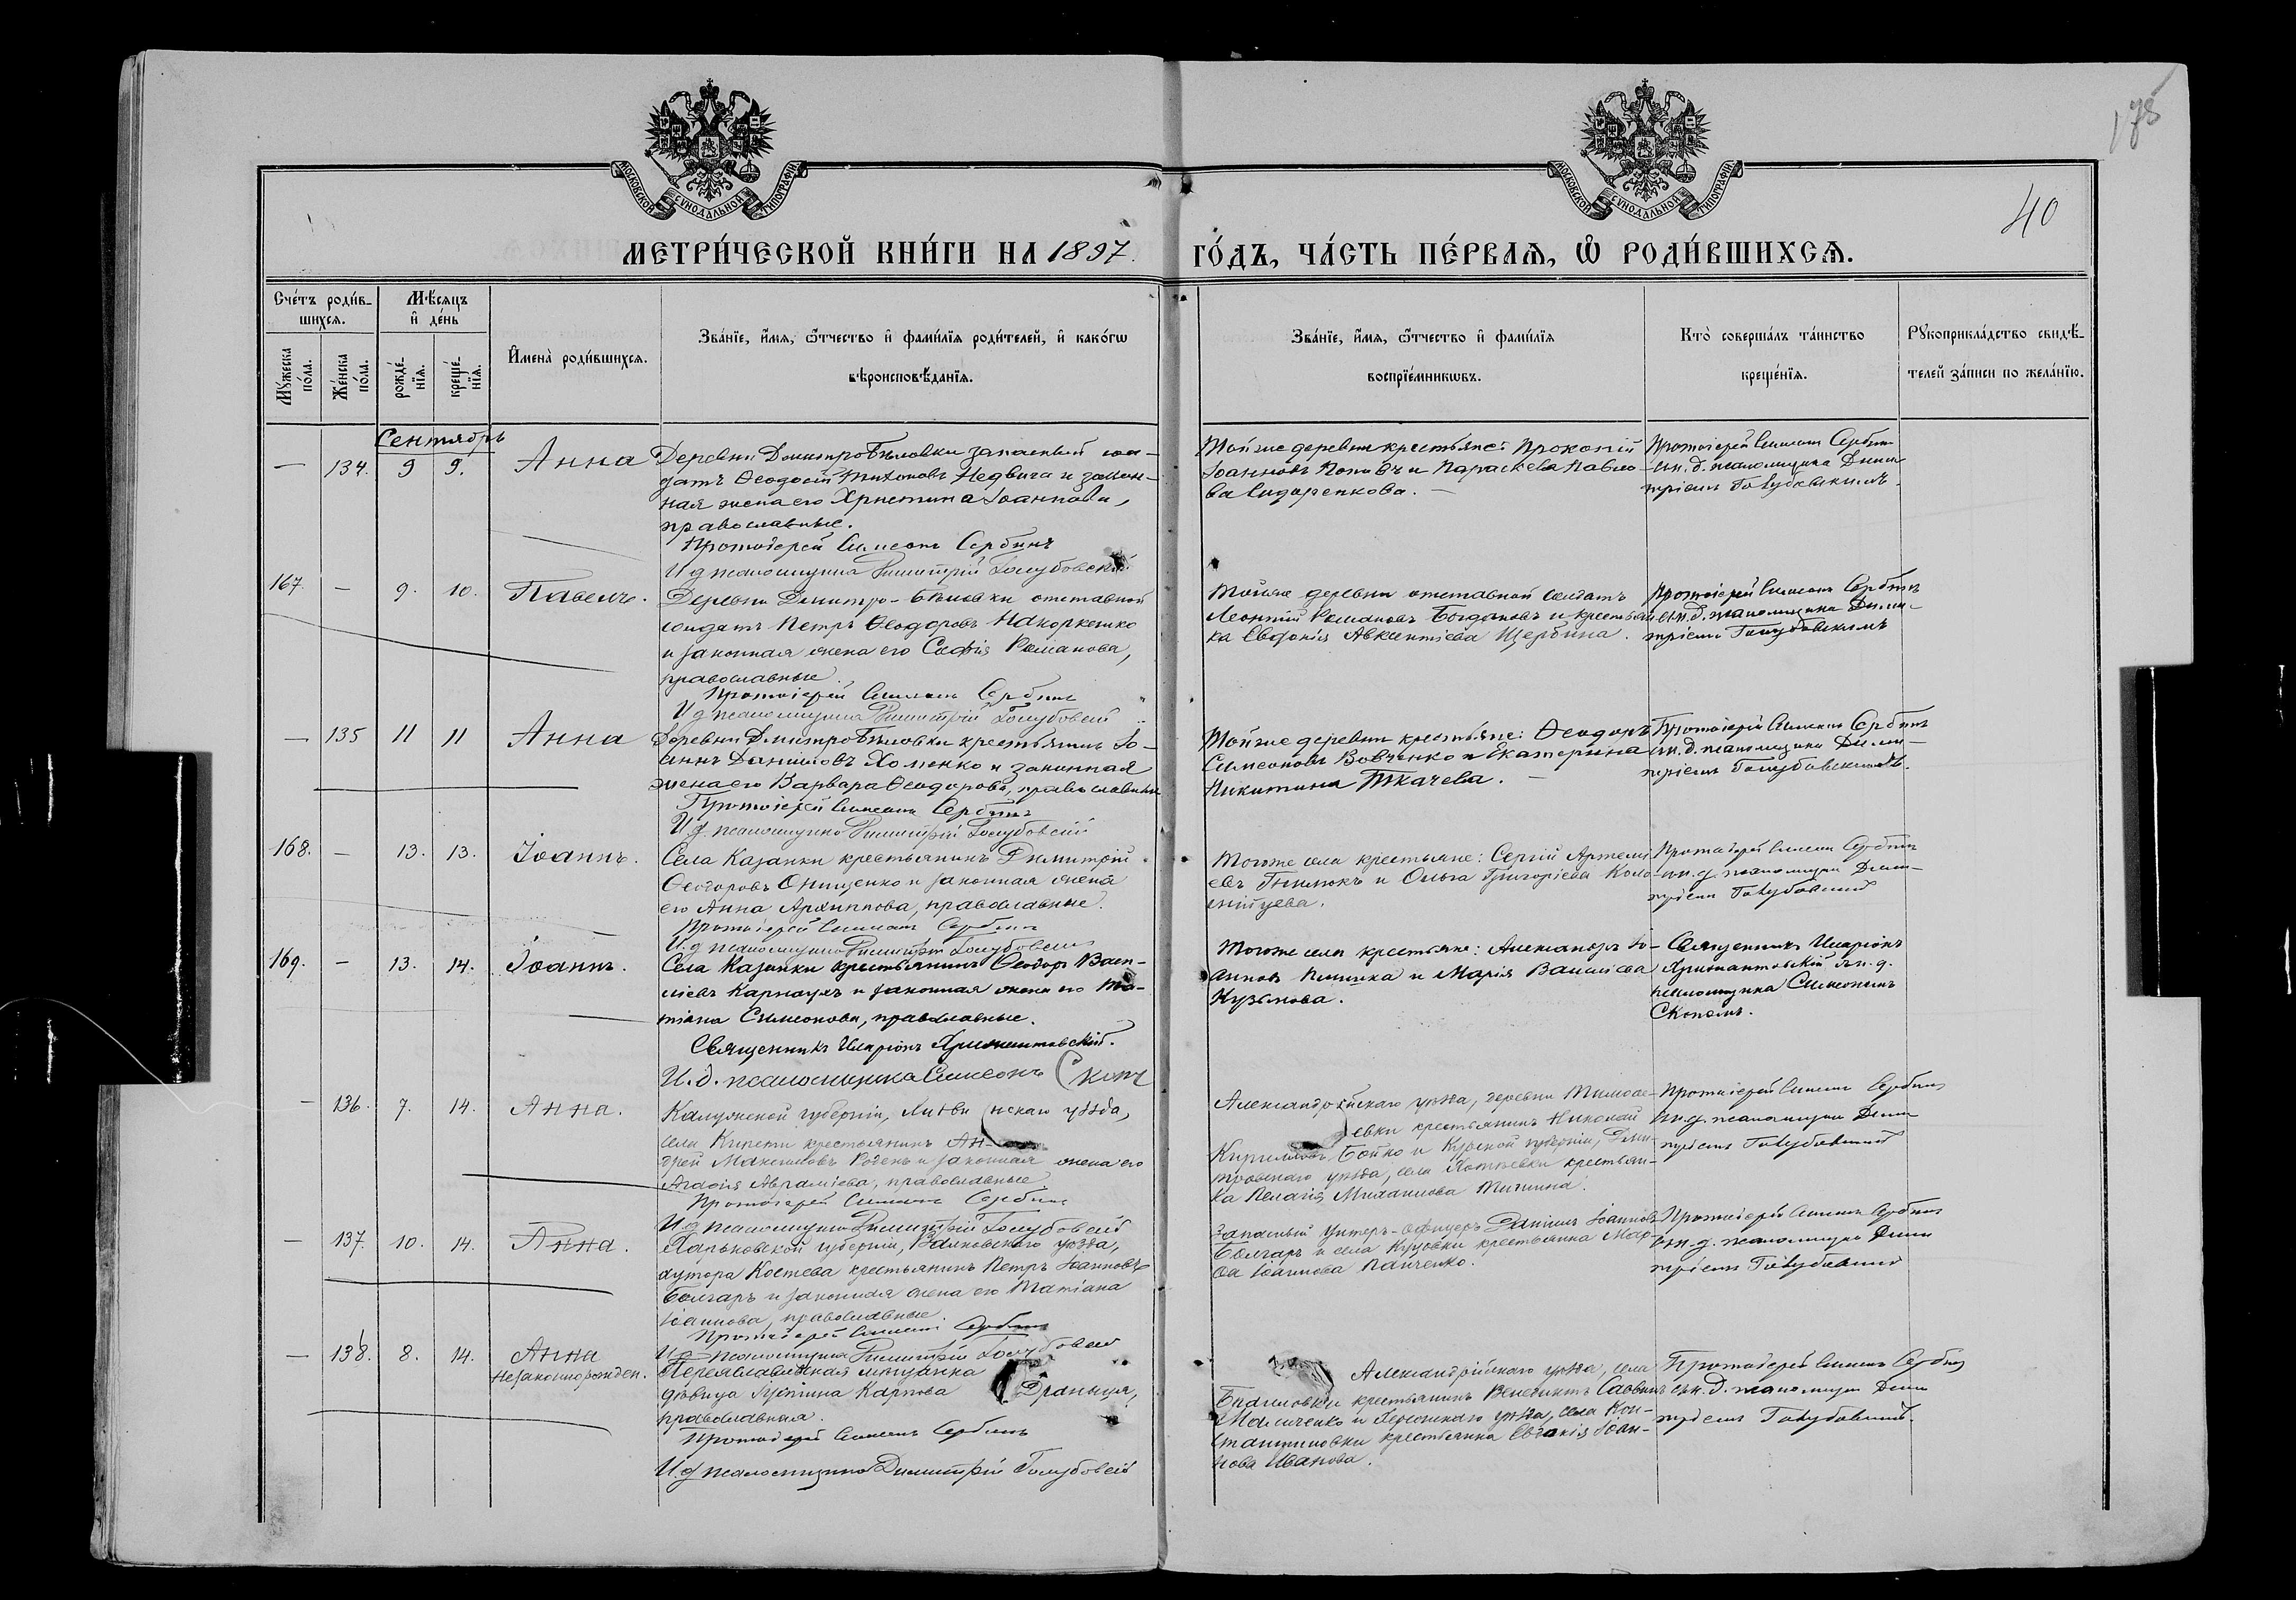 178
40
МОСКОВСКОЙ СУНОДАЛЬНОЙ ТИПОГРАФІИ
МОСКОВСКОЙ СУНОДАЛЬНОЙ ТИПОГРАФІИ
МЕТРИ́ЧЕСКОЙ КНИ́ГИ НА 1897.
ГО́ДЪ, ЧА́СТЬ ПЕ́РВАѦ, Ѡ РОДИ́ВШИХСѦ.
Сче́тъ роди́в-
шихсѧ.
Мꙋ́жеска
по́ла.
Же́нска
по́ла.
Мѣ́сѧцъ
и҆ де́нь
рожде́-
нїѧ.
креще́-
нїѧ.
И҆мена̀ роди́вшихсѧ.
Зва́нїе, и҆́мѧ, ѻ҆́тчество и҆ фами́лїѧ роди́телей, и҆ како́гѡ
вѣроисповѣ́данїѧ.
Зва́нїе, и҆́мѧ, ѻ҆́тчество и҆ фами́лїѧ
воспрїе́мникѡвъ.
Кто̀ соверша́лъ та́инство
креще́нїѧ.
Рꙋкоприкла́дство свидѣ́-
телей за́писи по жела́нїю.
Сентябрь
— 134. 9 9. Анна
Деревни Димитро-Бѣловки запасный сол-
датъ Ѳеодосій Тихоновъ Недвига и закон-
ная жена его Христина Іоаннова,
православные.
Протоіерей Симеонъ Сербинъ
И д псаломщика Димитрій Голубовскій
Той же деревни крестьяне: Прокопій
Іоанновъ Поповъ и Параскева Павло-
ва Сидоренкова. —
Протоіерей Симеонъ Сербинъ
съ и. д. псаломщика Дими-
тріемъ Голубовскимъ.
167. — 9. 10. Павелъ.
Деревни Димитро-Бѣловки отставной
солдатъ Петръ Ѳеодоровъ
и законная жена его Софія Романова,
православные.
Протоіерей Симеонъ Сербинъ
И д псаломщика Димитрій Голубовскій
Той же деревни отставной солдатъ
Леонтій Романовъ Богдановъ и крестьян-
ка Евфимія Авксентіева Щербина.
Протоіерей Симеонъ Сербинъ
съ и. д. псаломщика Дими-
тріемъ Голубовскимъ
— 135 11 11 Анна
Деревни Димитро-Бѣловки крестьянинъ Іо-
аннъ Даниловъ Хоменко и законная
жена его Варвара Ѳеодорова, православные
Протоіерей Симеонъ Сербинъ
И д. псаломщика Димитрій Голубовскій
Той же деревни крестьяне: Ѳеодоръ
Симеоновъ Вовченко и Екатерина
Никитина Ткачева. —
Протоіерей Симеонъ Сербинъ
съ и. д. псаломщика Дими-
тріемъ Голубовскимъ.
168. — 13. 13. Іоаннъ.
Села Казанки крестьянинъ Димитрій
Ѳеодоровъ Онищенко и законная жена
его Анна Архиппова, православные.
Протоіерей Симеонъ Сербинъ
И. д псаломщика Димитрій Голубовскій
Того же села крестьяне: Сергій Артемі-
евъ Гнилюкъ и Ольга Григоріева Коло-
мійцева.
Протоіерей Симеонъ Сербинъ
съ и. д. псаломщика Дими-
тріемъ Голубовскимъ
169. — 13. 14. Іоаннъ.
Села Казанки крестьянинъ Ѳеодоръ Васи-
ліевъ Карнаухъ и законная жена его Та-
тіана Симеонова, православные.
Священникъ Иларіонъ
И. д. псаломщика Симеонъ Скопъ
Того же села крестьяне: Александръ Іо-
анновъ и Марія Василіева
Кузьмова.
Священникъ Иларіонъ
съ и. д.
псаломщика Симеономъ
Скопомъ.
— 136. 7. 14. Анна.
Калужской губерніи, уѣзда,
села крестьянинъ Ан-
дрей Максимовъ и законная жена его
Агафія Авраміева, православные
Протоіерей Симеонъ Сербинъ
И. д псаломщика Димитрій Голубовскій
Александрійскаго уѣзда, деревни Тимофе-
евки крестьянинъ Николай
Кирилловъ Бойко и Курской губерніи, Дми-
тровскаго уѣзда, села крестьян-
ка Пелагія Михаилова
Протоіерей Симеонъ Сербинъ
съ и. д. псаломщика Дими-
тріемъ Голубовскимъ
— 137. 10. 14. Анна.
Харьковской губерніи, Валковскаго уѣзда,
хутора Костева крестьянинъ Петръ Іоанновъ
Болгаръ и законная жена его Татіана
Іоаннова, православные.
Протоіерей Симеонъ Сербинъ
И д псаломщика Димитрій Голубовскій
Запасный унтеръ-офицеръ Даніилъ Іоанновъ
Болгаръ и села Куцовки крестьянка Мар-
ѳа Іоаннова Панченко.
Протоіерей Симеонъ Сербинъ
съ и. д. псаломщика Дими-
тріемъ Голубовскимъ
— 138. 8. 14. Анна
незаконнорожден.
Переяславльская мѣщанка
дѣвица Іустина Карпова
православная.
Протоіерей Симеонъ Сербинъ
И. д псаломщика Димитрій Голубовскій
Александрійскаго уѣзда, села
крестьянинъ Венедиктъ Саввинъ
и Херсонскаго уѣзда, села Кон-
стантиновки крестьянка Евдокія Іоан-
нова Иванова.
Протоіерей Симеонъ Сербинъ
съ и. д. псаломщика Дими-
тріемъ Голубовскимъ.